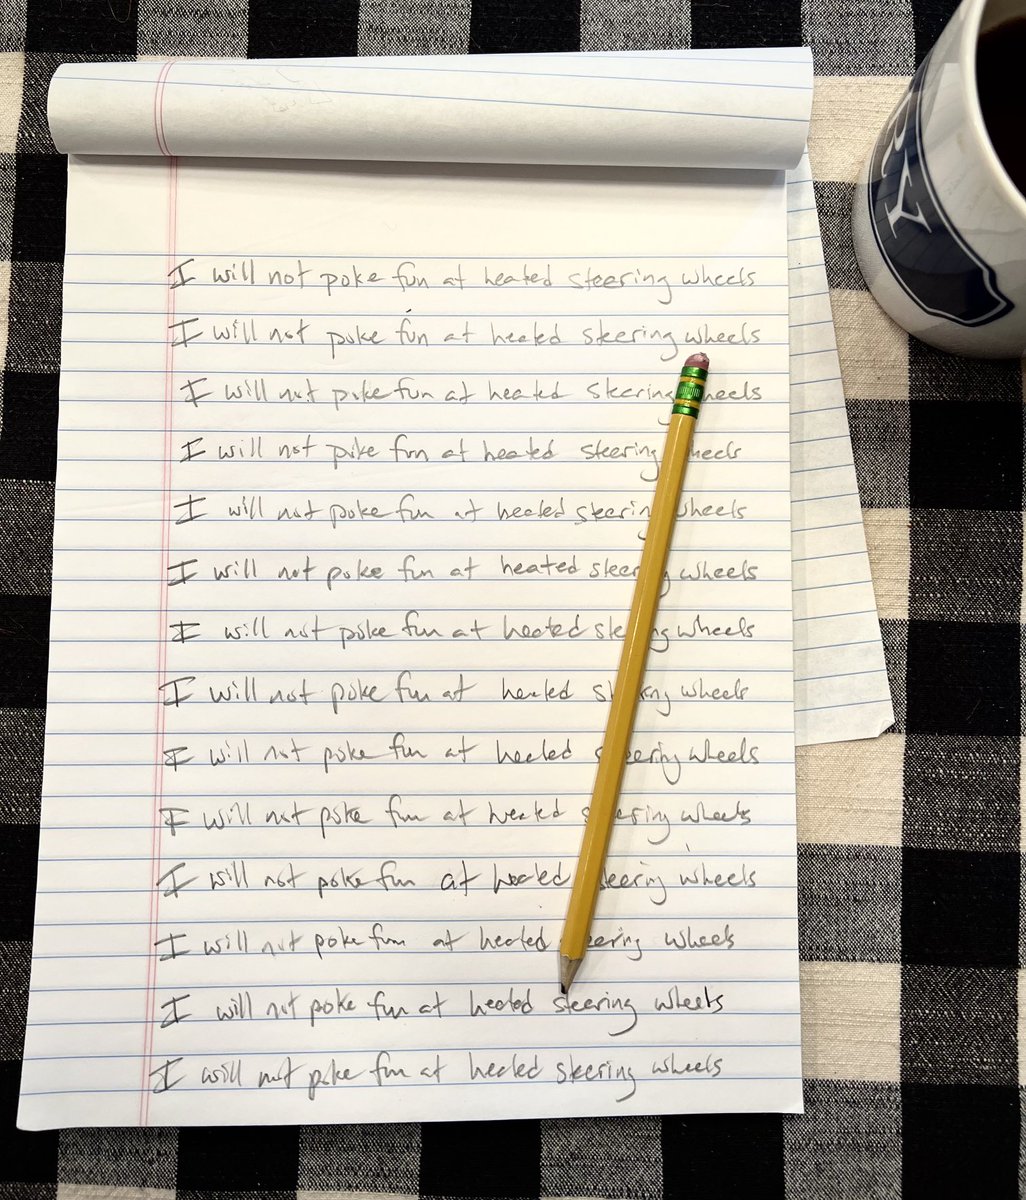 I will not poke fun at heated steering wheels
I will not poke fun at heated steering wheels
I will not poke fun at heated steering wheels
I will not poke fun at heated steering wheels
I will not poke fun at heated steering wheels
I will not poke fun at heated steering wheels
I will not poke fun at heated steering wheels
I will not poke fun at heated steering wheels
I will not poke fun at heated steering wheels
I will not poke fun at heated steering wheels
I will not poke fun at heated steering wheels
I will not poke fun at heated steering wheels
I will not poke fun at heated steering wheels
I will not poke fun at heated steering wheels